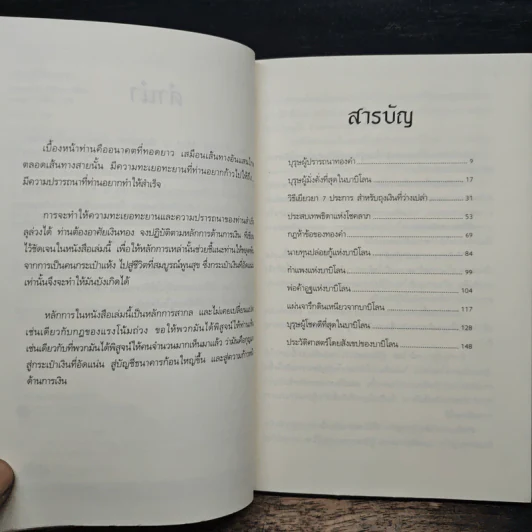 เบื้องหน้าท่านคืออนาคตที่ทอดยาว เสมือนเส้นทางอันแสนไกล
ตลอดเส้นทางสายนั้น มีความทะเยอทะยานที่ท่านอยากก้าวไปให้ถึง
มีความปรารถนาที่ท่านอยากทำให้สำเร็จ
การจะทำให้ความทะเยอทะยานและความปรารถนาของท่านสำเร็จ
ลุล่วงได้ ท่านต้องอาศัยเงินทอง จงปฏิบัติตามหลักการด้านการเงิน
ไว้ชัดเจนในหนังสือเล่มนี้ เพื่อให้หลักการเหล่านั้นช่วยชี้แนะท่าน
จากการเป็นคนกระเป๋าแห้ง ไปสู่ชีวิตที่สมบูรณ์พูนสุข ซึ่งกระเป๋าเงินที่
เท่านั้นจึงจะทำให้มันบังเกิดได้
หลักการในหนังสือเล่มนี้เป็นหลักการสากล และไม่เคยเปลี่ยนแปลง
เช่นเดียวกับกฎของแรงโน้มถ่วง ขอให้พวกมันได้พิสูจน์ให้ท่านเห็น
เช่นเดียวกับที่พวกมันได้พิสูจน์ให้คนจำนวนมากเห็นมาแล้ว ว่ามันคือกุญแจ
สู่กระเป๋าเงินที่อัดแน่น สู่บัญชีธนาคารก้อนใหญ่ขึ้น และสู่ความก้าวหน้า
ด้านการเงิน
สารบัญ
บุรุษผู้ปรารถนาทองคำ 9
บุรุษผู้มั่งคั่งที่สุดในบาบิโลน 17
วิธีเยียวยา 7 ประการ สำหรับถุงเงินที่ว่างเปล่า 31
ประสบเทพธิดาแห่งโชคลาภ 53
กฎห้าข้อของทองคำ 69
นายทุนปล่อยกู้แห่งบาบิโลน 84
กำแพงแห่งบาบิโลน 99
พ่อค้าอูฐแห่งบาบิโลน 104
แผ่นจารึกดินเหนียวจากบาบิโลน 117
บุรุษผู้โชคดีที่สุดในบาบิโลน 128
ประวัติศาสตร์โดยสังเขปของบาบิโลน 148